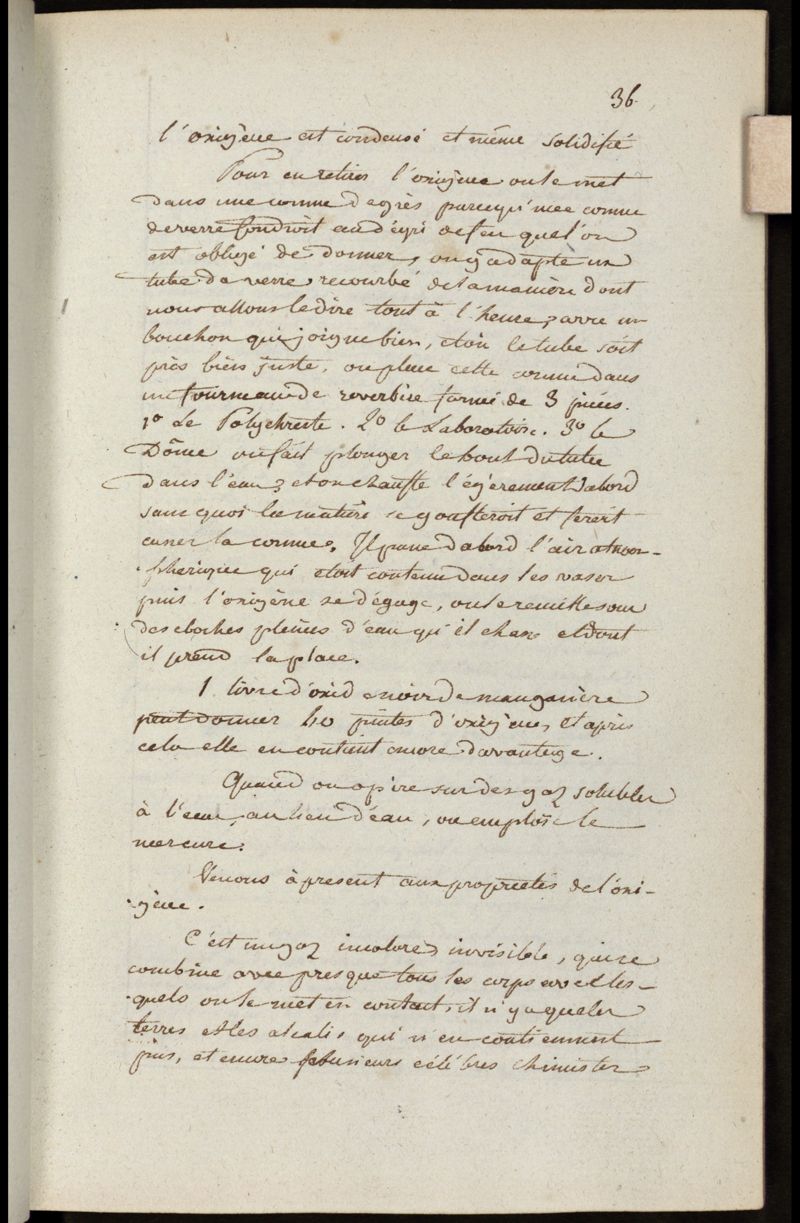 36.
l'oxigène est condensé et même solidifié
Pour en retirer l'oxigene on le met
dans une cornue de grès parcequ'une cornue
de verre fondroit au dégré de feu que l'on
est obligé de donner, on y adapte un
tube de verre recourbé de la maniere dont
nous allons le dire tout à l'heure, avec un
bouchon qui joigne bien, et où le tube soit
pris bien juste, on place cette cornue dans
un fourneau de reverbère formé de 3 pièces.
1º Le Polychreste. 2º le Laboratoire. 3º le
Dôme on fait plonger le bout du tube
dans l'eau, et on chauffe légerement d'abord
sans quoi la matière se goufleroit et feroit
casser la cornue. Il passe d'abord l'air atmos-
pherique qui etoit contenu dans les vases
puis l'oxigène se dégage, on le recueille sous
des cloches pleines d'eau qu'il chasse et dont
il prend la place.
1 livre d'oxide noir de manganèse
peut donner 40 pintes d'oxigène, et après
cela elle en contient encore davantage.
Quand on opère sur des gaz solubles
à l'eau, au lieu d'eau, on emploie le
mercure.
Venons à present aux proprietés de l'oxi-
gène.
C'est un gaz incolore, invisible, qui se
combine avec presque tous les corps avec les-
quels on le met en contact, il n'y a que les
terres et les alcalis qui n'en contiennent
pas, et encore plusieurs célèbres chimistes